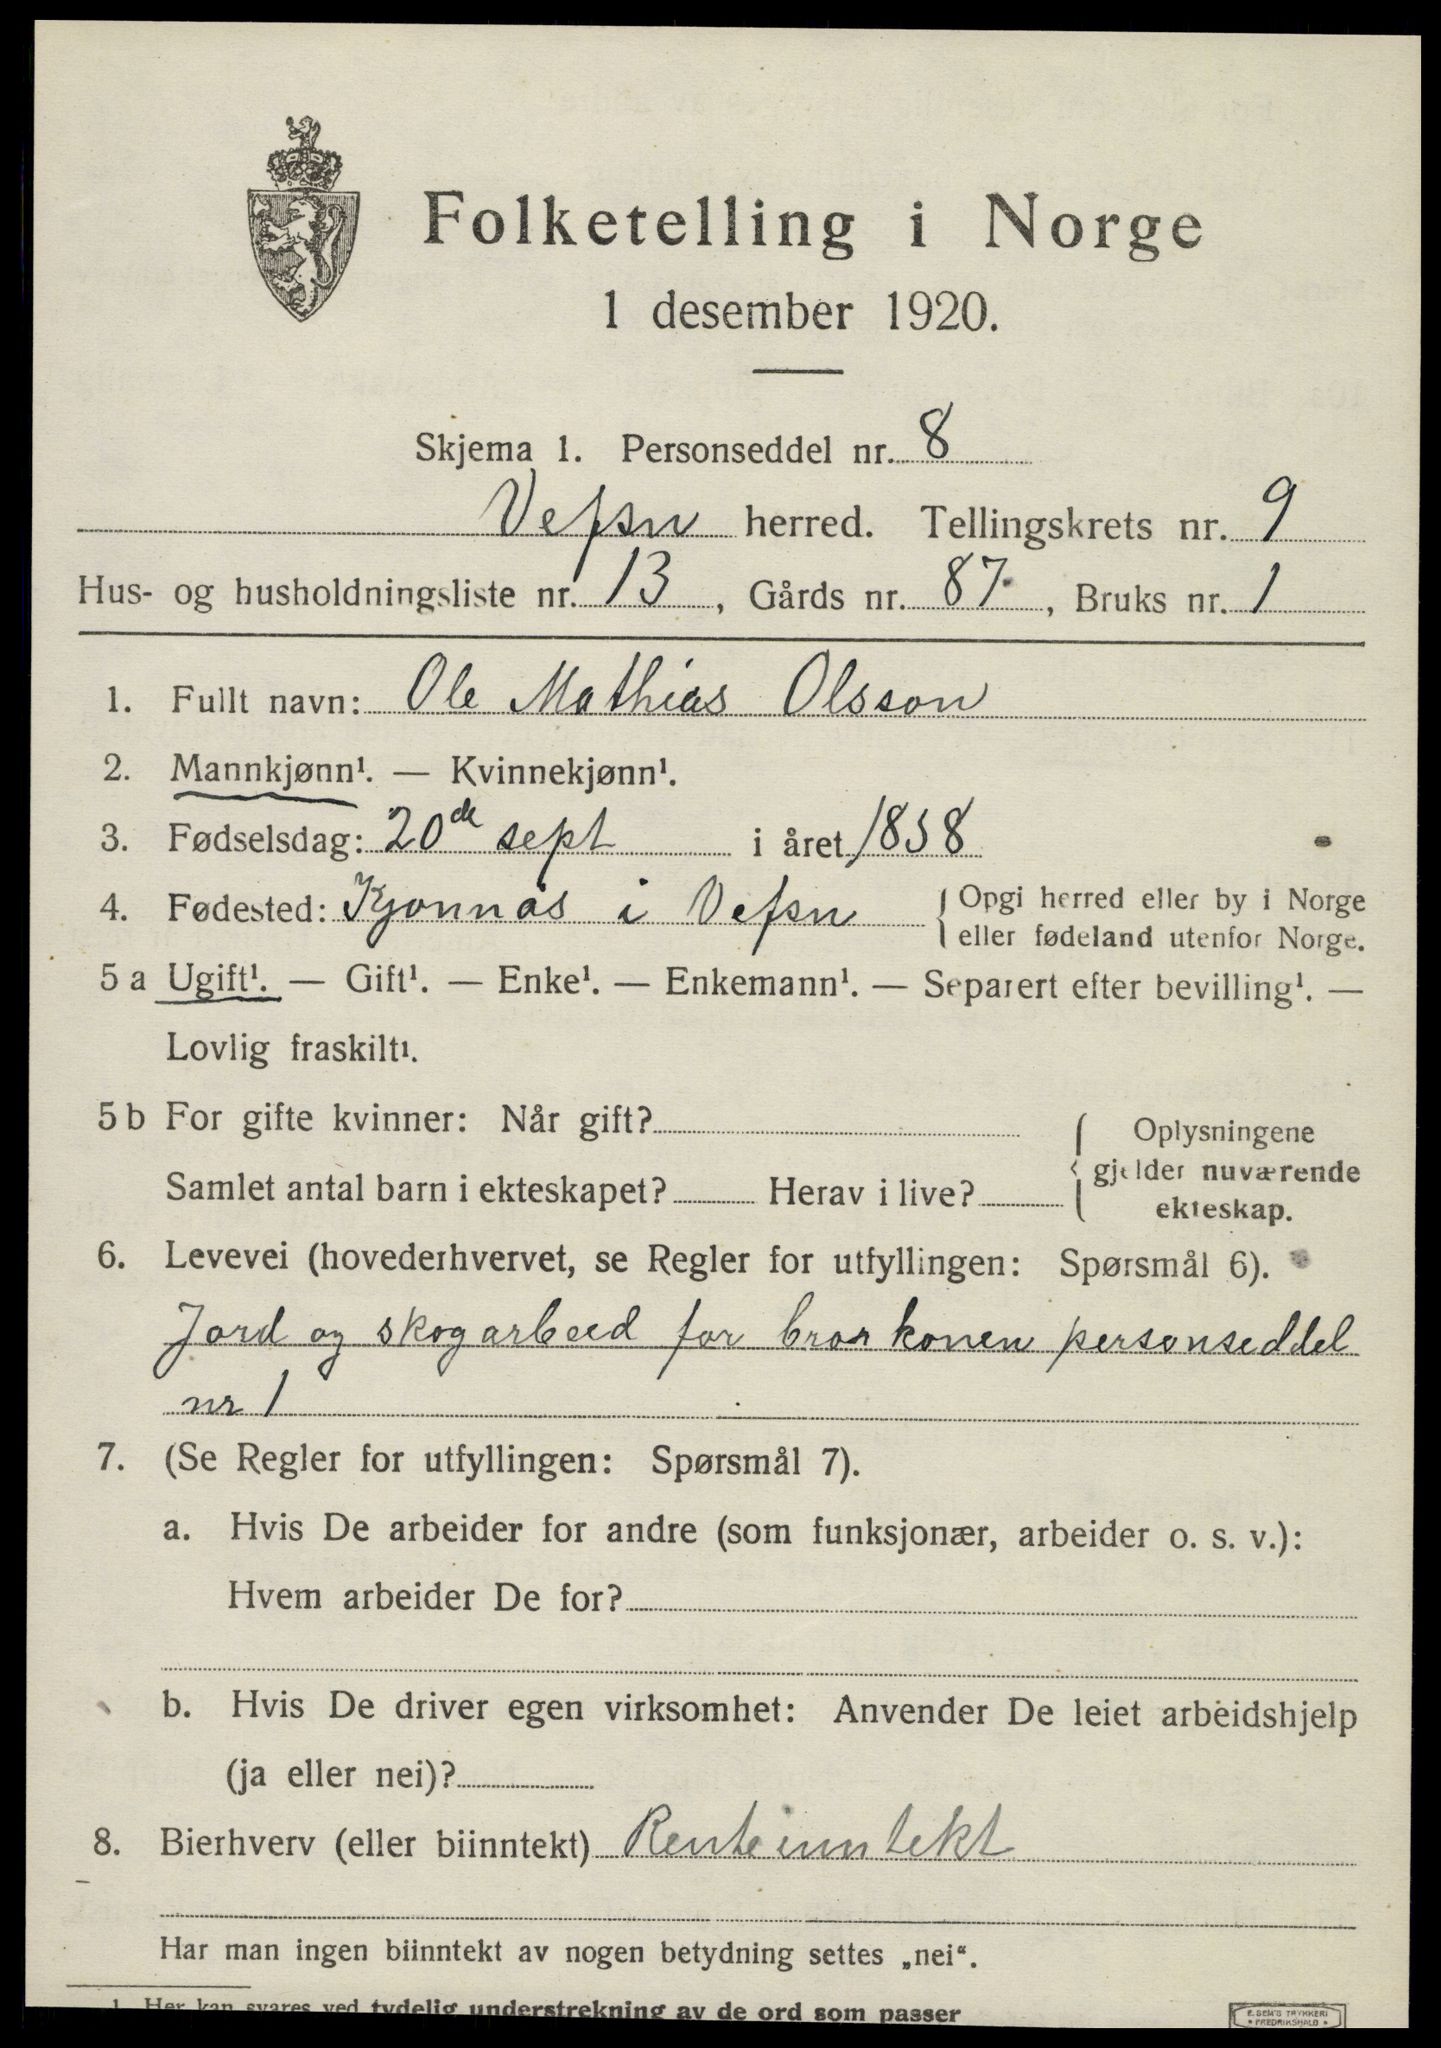 Folketelling i Norge
1 desember 1920.
Skjema 1. Personseddel nr. 8
Vefsn herred. Tellingskrets nr. 9
Hus- og husholdningsliste nr. 13, Gårds nr. 87, Bruks nr. 1
1. Fullt navn: Ole Mathias Olsson
2. Mannkjønn¹. — Kvinnekjønn¹.
3. Fødselsdag: 20de sept i året 1858
4. Fødested: Kjonnås i Vefsn { Opgi herred eller by i Norge
eller fødeland utenfor Norge.
5 a Ugift¹. — Gift¹. — Enke¹. — Enkemann¹. — Separert efter bevilling¹. —
Lovlig fraskilt¹.
5 b For gifte kvinner: Når gift?
Samlet antal barn i ekteskapet? Herav i live?
{ Oplysningene
gjelder nuværende
ekteskap.
6. Levevei (hovederhvervet, se Regler for utfyllingen: Spørsmål 6).
Jord og skogarbeid for bror konen personseddel
nr 1
7. (Se Regler for utfyllingen: Spørsmål 7).
a. Hvis De arbeider for andre (som funksjonær, arbeider o. s. v.):
Hvem arbeider De for?
b. Hvis De driver egen virksomhet: Anvender De leiet arbeidshjelp
(ja eller nei)?
8. Bierhverv (eller biinntekt) Renteinntekt
Har man ingen biinntekt av nogen betydning settes „nei“.
1 Her kan svares ved tydelig understrekning av de ord som passer
E. SEM'S TRYKKERI
• FREDRIKSHALD •